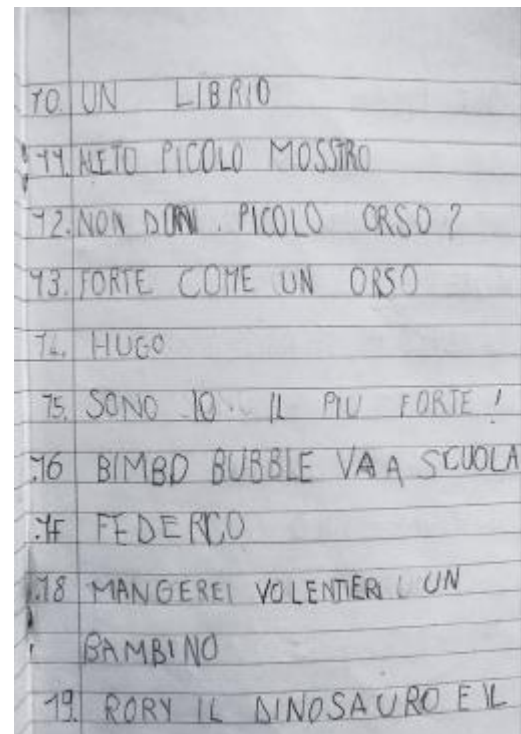 10. UN LIBRIO
11. NETO PICOLO MOSSTRO
12. NON DORMI. PICOLO ORSO?
13. FORTE COME UN ORSO
14. HUGO
15. SONO IO IL PIU FORTE!
16 BIMBO BUBBLE VA A SCUOLA
17 FEDERICO
18 MANGEREI VOLENTIERI UN
BAMBINO
19. RORY IL DINOSAURO E IL